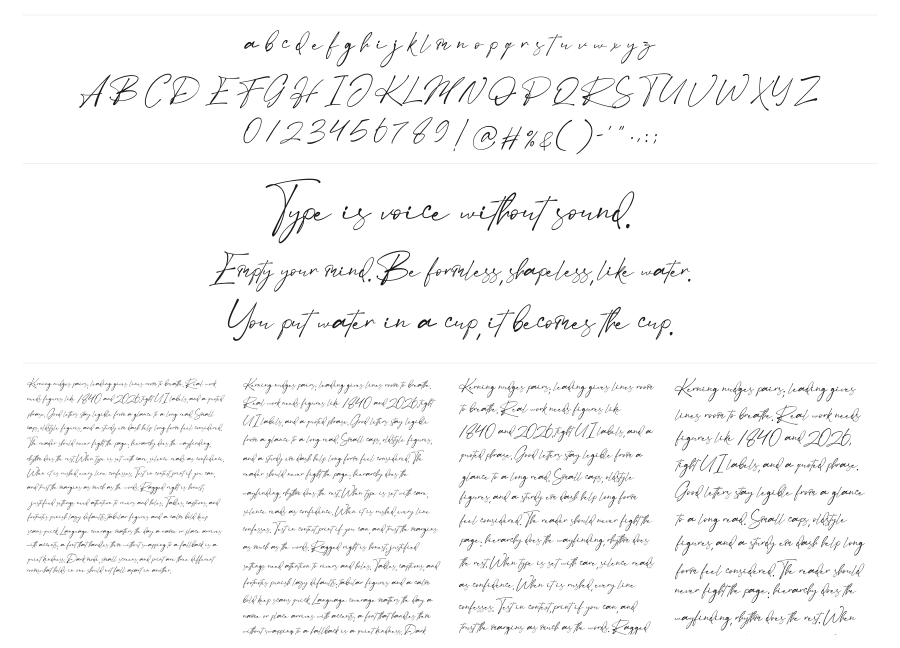 a b c d e f g h i j k l m n o p q r s t u v w x y z
A B C D E F G H I J K L M N O P Q R S T U V W X Y Z
0 1 2 3 4 5 6 7 8 9 ! @ # % & ( ) - ' " . , : ;
Type is voice without sound.
Empty your mind. Be formless, shapeless, like water.
You put water in a cup, it becomes the cup.
Kerning nudges pairs, leading gives lines room to breathe. Real work
needs figures like 1840 and 2026, tight UI labels, and a quoted
phrase. Good letters stay legible from a glance to a long read. Small
caps, oldstyle figures, and a sturdy em dash help long form feel considered.
The reader should never fight the page. hierarchy does the wayfinding,
rhythm does the rest. When type is set with care, silence reads as confidence.
When it is rushed, every line confesses. Test in context, print if you can,
and trust the margins as much as the words. Ragged right is honest,
justified settings need attention to rivers and holes. Tables, captions, and
footnotes punish lazy defaults. tabular figures and a calm bold keep
scans quick. Language coverage matters the day a name or place arrives
with accents, a font that handles them without swapping to a fallback is a
quiet kindness. Dark mode, small screens, and print are three different
rooms. what holds in one should not fall apart in another.
Kerning nudges pairs, leading gives lines room to breathe.
Real work needs figures like 1840 and 2026, tight
UI labels, and a quoted phrase. Good letters stay legible
from a glance to a long read. Small caps, oldstyle figures,
and a sturdy em dash help long form feel considered. The
reader should never fight the page. hierarchy does the
wayfinding, rhythm does the rest. When type is set with care,
silence reads as confidence. When it is rushed, every line
confesses. Test in context, print if you can, and trust the margins
as much as the words. Ragged right is honest, justified
settings need attention to rivers and holes. Tables, captions, and
footnotes punish lazy defaults. tabular figures and a calm
bold keep scans quick. Language coverage matters the day a
name or place arrives with accents, a font that handles them
without swapping to a fallback is a quiet kindness. Dark
Kerning nudges pairs, leading gives lines room
to breathe. Real work needs figures like
1840 and 2026, tight UI labels, and a
quoted phrase. Good letters stay legible from a
glance to a long read. Small caps, oldstyle
figures, and a sturdy em dash help long form
feel considered. The reader should never fight the
page. hierarchy does the wayfinding, rhythm does
the rest. When type is set with care, silence reads
as confidence. When it is rushed, every line
confesses. Test in context, print if you can, and
trust the margins as much as the words. Ragged
Kerning nudges pairs, leading gives
lines room to breathe. Real work needs
figures like 1840 and 2026,
tight UI labels, and a quoted phrase.
Good letters stay legible from a glance
to a long read. Small caps, oldstyle
figures, and a sturdy em dash help long
form feel considered. The reader should
never fight the page. hierarchy does the
wayfinding, rhythm does the rest. When